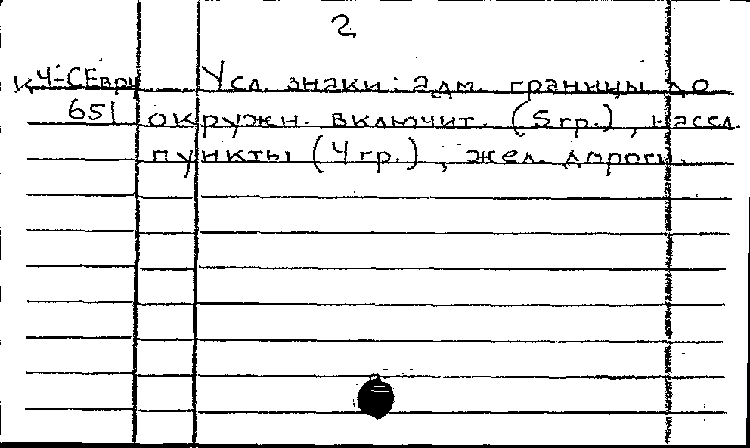 2
К Ч-СЕвры Усл. знаки: адм. границы до
651 окружн. включит. (5 гр.), насел.
пункты (4 гр.), жел. дороги.